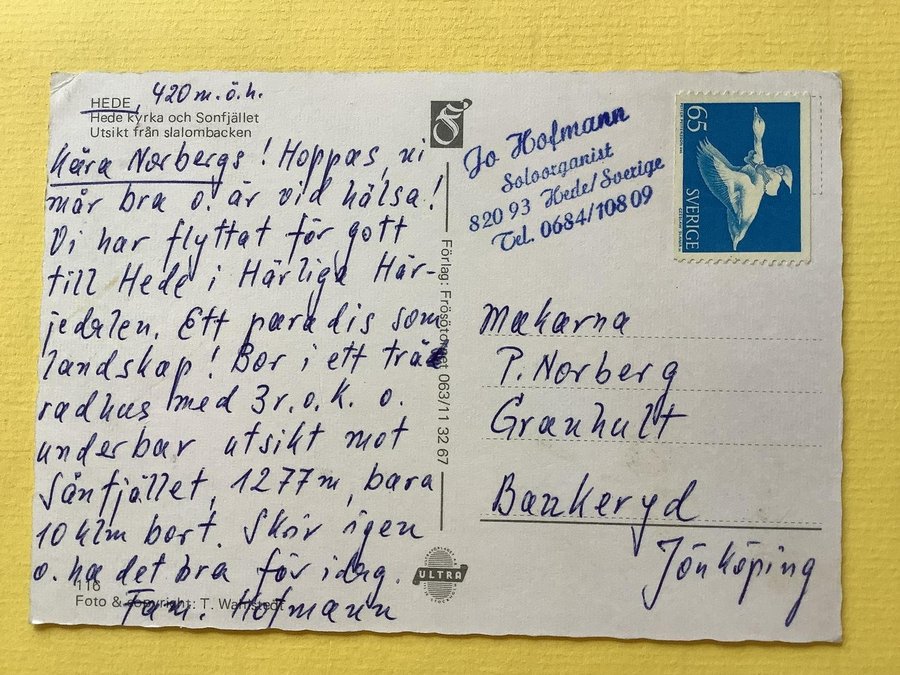 HEDE, 420 m.ö.h.
Hede kyrka och Sonfjället
Utsikt från slalombacken
Kära Norbergs! Hoppas, ni
mår bra o. är vid hälsa!
Vi har flyttat för gott
till Hede i Härliga Här-
jedalen. Ett paradis som
landskap! Bor i ett trä
radhus med 3 r. o. k. o.
underbar utsikt mot
Sånfjället, 1277m, bara
10 klm bort. Skriv igen
o. ha det bra för idag.
Fam. Hofmann
116
Foto & Copyright: T. Wahlstedt
Förlag: Frösötorget 063/11 32 67
ULTRA
Jo Hofmann
Soloorganist
820 93 Hede/Sverige
Tel. 0684/108 09
65
SVERIGE
Makarna
P. Norberg
Granhult
Bankeryd
Jönköping